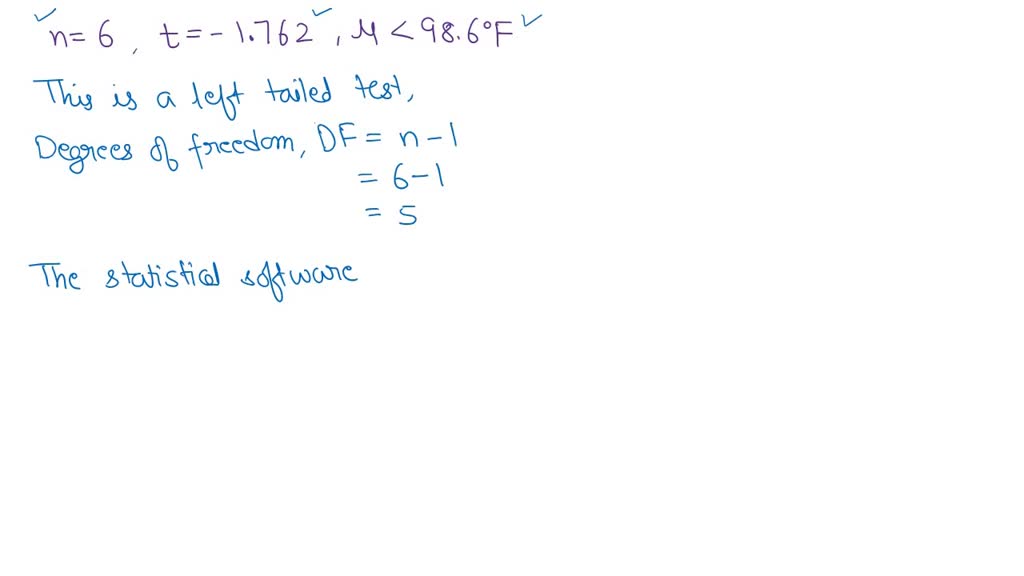 n = 6 , t = - 1.762 , M < 98.6°F
This is a left tailed test,
Degrees of freedom, DF = n - 1
= 6 - 1
= 5
The statistical software